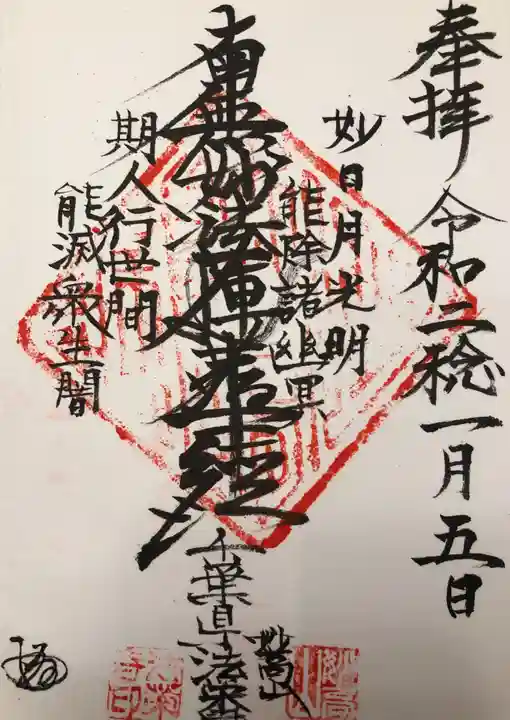 奉拝 令和二稔一月五日
妙日月光明
能除諸幽冥
南無妙法蓮華經
期人行世間
能滅衆生闇
妙高山
千葉県